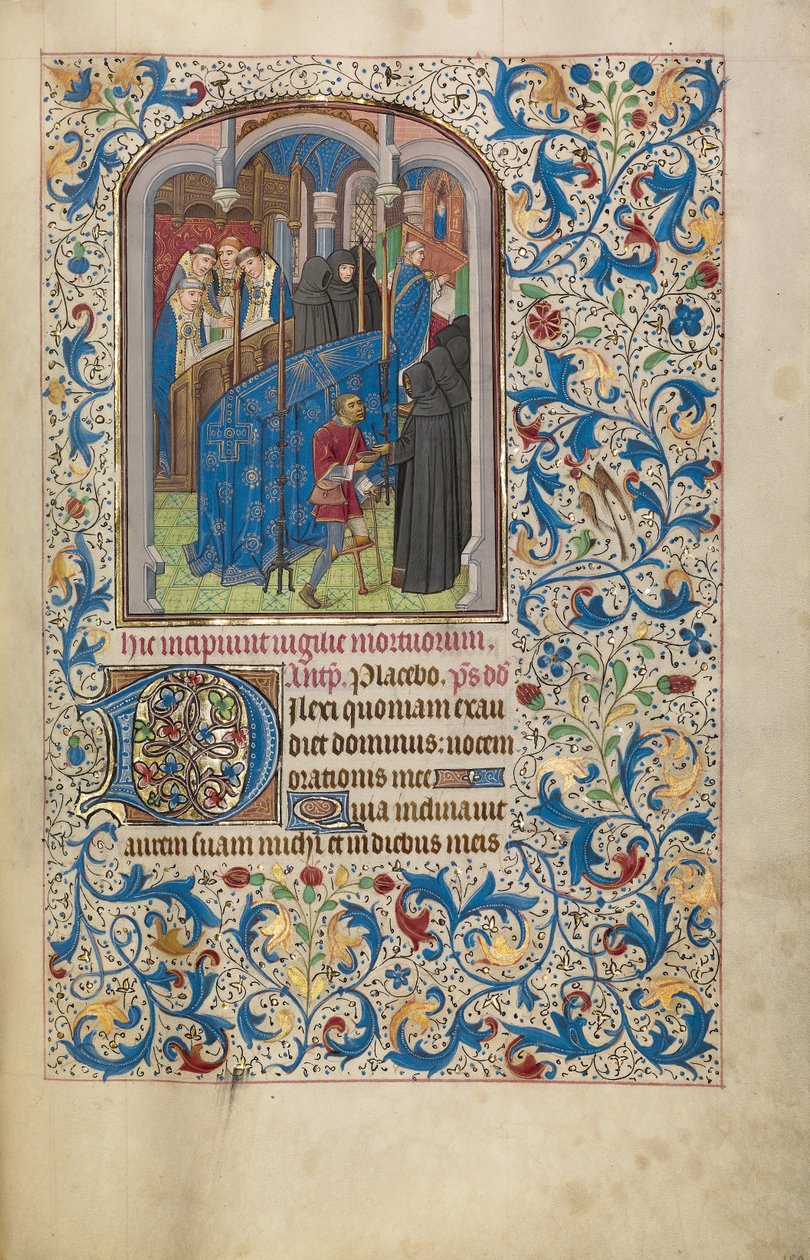 hic incipiunt uigilie mortuorum.
Antp. Placebo. ps dd
Dilexi quoniam exau
diet dominus: uocem
orationis mee
Quia inclinauit
aurem suam michi et in diebus meis